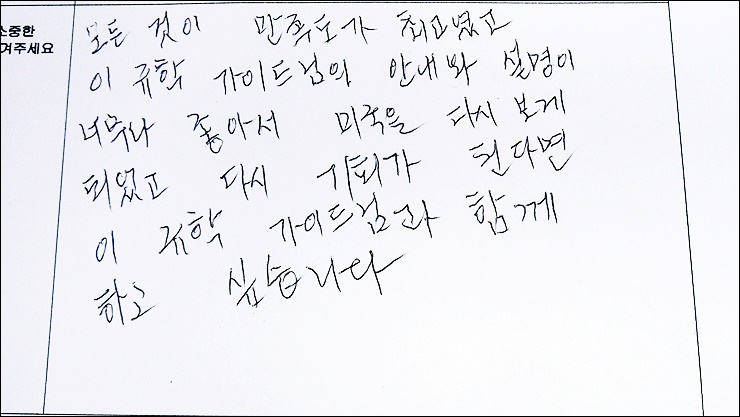 소중한
겨주세요
모든 것이 만족도가 최고였고
이규학 가이드님의 안내와 설명이
너무나 좋아서 미국을 다시 보게
되었고 다시 기회가 된다면
이규학 가이드님과 함께
하고 싶습니다